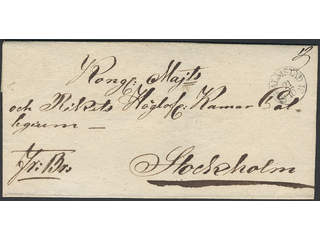 Kongl: Majts
och Rikets Höglofl: Kamar Col-
legium
Fr: Brs
Stockholm